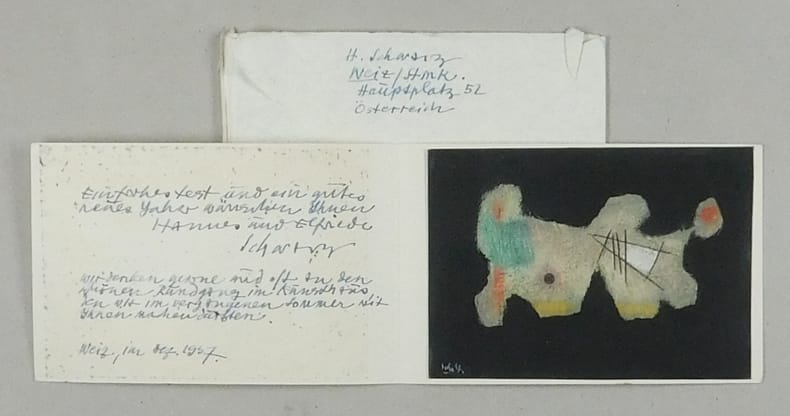 H. Schwarz
Weiz/Stmk.
Hauptplatz 52
Österreich
Ein frohes Fest und ein gutes
neues Jahr wünschen Ihnen
Hannes und Elfriede
Schwarz
wir denken gerne und oft an den
schönen Rundgang im Künstlerhaus
den wir im vergangenen Sommer mit
Ihnen machen durften.
Weiz, im Dez. 1957.